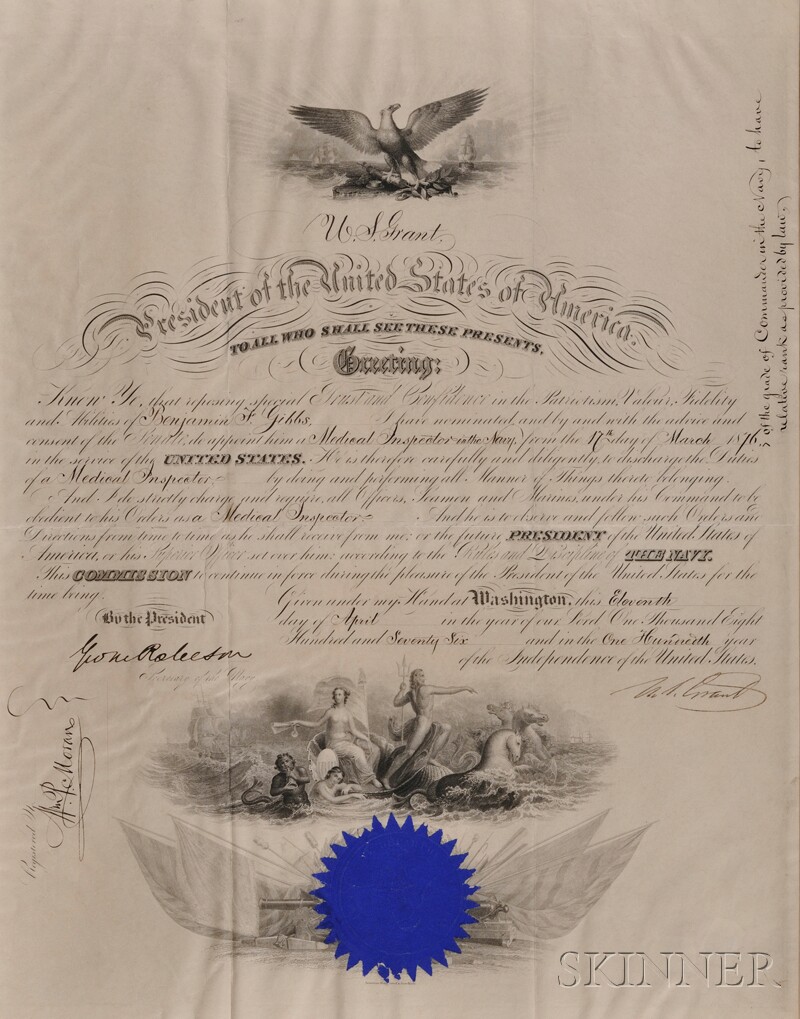 U. S. Grant.
President of the United States of America.
TO ALL WHO SHALL SEE THESE PRESENTS,
Greeting:
Know Ye, that reposing special Trust and Confidence in the Patriotism, Valour, Fidelity
and Abilities of Benjamin F. Gibbs, I have nominated, and by and with the advice and
consent of the Senate, do appoint him a Medical Inspector in the Navy, from the 17th day of March 1876,
in the service of the UNITED STATES. He is therefore carefully and diligently, to discharge the Duties
of a Medical Inspector, by doing and performing all Manner of Things thereto belonging.
And I do strictly charge and require, all Officers, Seamen and Marines, under his Command to be
obedient to his Orders as a Medical Inspector And he is to observe and follow such Orders and
Directions from time to time as he shall receive from me, or the future PRESIDENT of the United States of
America, or his Superior Officer set over him; according to the Rules and Discipline of THE NAVY.
This COMMISSION to continue in force during the pleasure of the President of the United States for the
time being.
Given under my Hand at Washington, this Eleventh
day of April in the year of our Lord One Thousand Eight
Hundred and Seventy Six and in the One Hundredth year
of the Independence of the United States.
By the President
Geo M Robeson
Secretary of the Navy
U. S. Grant
of the grade of Commander in the Navy, to have
relative rank as provided by law.
Registered
Moran
SKINNER